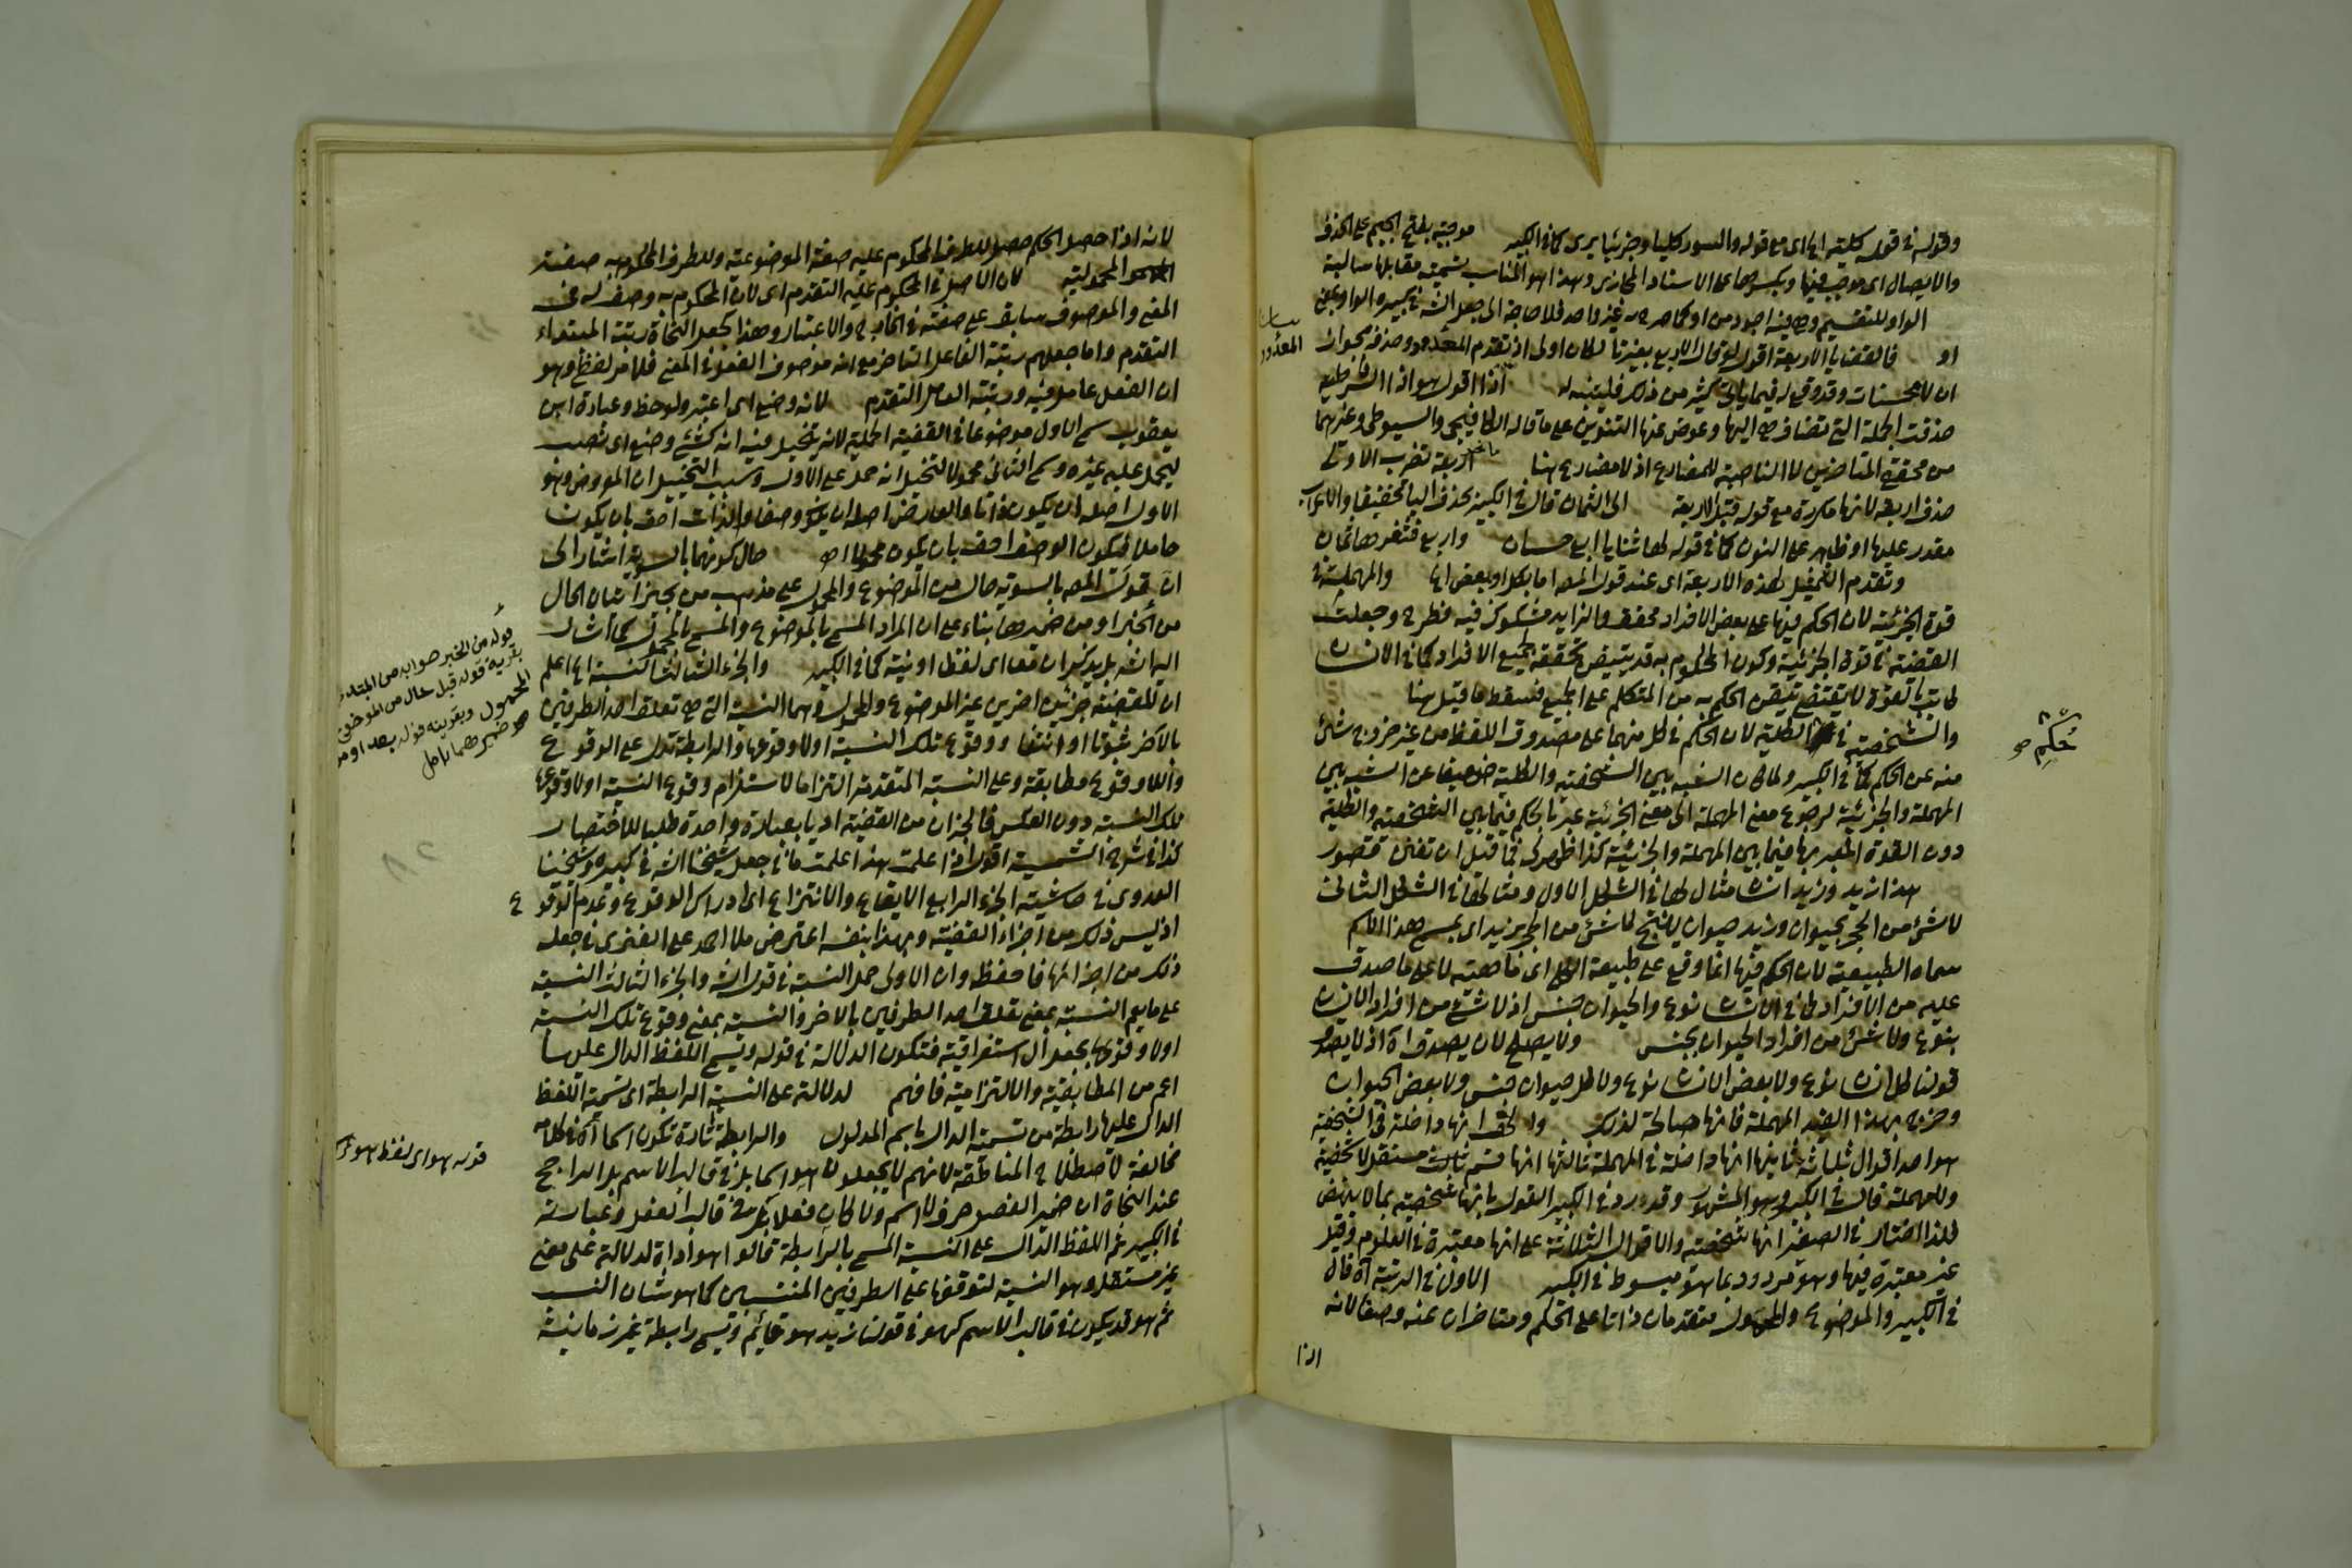 وقوله في قوله كلية اما اى مع قوله والسور كليا وجزئيا يرى كما في الكبير موجبة بفتح الجيم على الحذف
والايصال اى موجب فيها وبكسرها على الاسناد المجازى وهذا هو المناسب لتسمية مقابلها سالبة
الواو للتقسيم وهي فيه اجود من او كما صرح به غير واحد فلا حاجة الى جعل الش في كبيره الواو بمعنى
او فالقضايا الاربعة اقول لو قال الاربع بغير تا لكان اولى اذ تقدم المعدود وحذفه مجوزات
ان للمحسنات وقد وقع له فيما ياتى كثير من ذلك فليتنبه له اذا اقول هو اذا الشرطية
حذفت الجملة التي تضاف هي اليها وعوض عنها التنوين على ما قاله الكافيجى والسيوطى وغيرهما
من محققي المتاخرين لا الناصبة للمضارع اذ لا مضارع هنا اربعة تضرب الاولى
حذف اربعة لانها مكررة مع قوله قبل الاربعة الى الثمان قال في الكبير بحذف اليا تخفيفا والاعراب
مقدر عليها او ظاهر على النون كما في قوله لها ثنايا اربع حسان واربع فثغرها ثمان
وتقدم التمثيل لهذه الاربعة اى عند قول المص اما بكل او ببعض الخ والمهملة في
قوة الجزئية لان الحكم فيها على بعض الافراد محقق والزايد مشكوك فيه فطرح وجعلت
القضية في قوة الجزئية وكون المحكوم به قد يتيقن تحققه لجميع الافراد كما في الانسان
كاتب بالقوة لا يقتضى تيقن الحكم به من المتكلم على الجميع فسقط ما قيل هنا
والشخصية في الكلية لان الحكم في كل منهما على مصدوق اللفظ من غير خروج شئ
منه عن الحكم كما في الكبير ولما كان الشبه بين الشخصية والكلية ضعيفا عن الشبه بين
المهملة والجزئية لرجوع معنى المهملة الى معنى الجزئية عبر بالحكم فيما بين الشخصية والكلية
دون القوة المعبر بها فيما بين المهملة والجزئية كذا ظهر لى فما قيل ان تفنن قصور
هذا زيد وزيد انسان مثال لها في الشكل الاول ومثالها في الشكل الثانى
لا شئ من الحجر بحيوان وزيد حيوان ينتج لا شئ من الحجر بزيد اى بمسمى هذا الاسم
سماه الطبيعية لان الحكم فيها انما وقع على طبيعة الكلى اى ماهيته لا على ما صدق
عليه من الافراد كما في الانسان نوع والحيوان جنس اذ لا شئ من افراد الانسان
بنوع ولا شئ من افراد الحيوان بجنس ولا يصلح لان يصدق اه اذ لا يصدق
قولنا كل انسان نوع ولا بعض الانسان نوع ولا كل حيوان جنس ولا بعض الحيوان
وخرج بهذا القيد المهملة فانها صالحة لذلك والحق انها داخلة في الشخصية
هو احد اقوال ثلاثة ثانيها انها داخلة في المهملة ثالثها انها قسم ثالث مستقل لا شخصية
ولا مهملة قال في الكبير وهو المشهور وقد رد في الكبير القول بانها شخصية بما لا ينهض
فلذا اختار في الصغير انها شخصية والاقوال الثلاثة على انها معتبرة في العلوم وقيل
غير معتبرة فيها وهو مردود بما هو مبسوط في الكبير الاول في الرتبة اه قال
في الكبير والموضوع والمحمول متقدمان ذاتا على الحكم ومتاخران عنه وصفا لانه
اذا
المعدود
حكم صح
لانه اذا حصل الحكم حصل للطرف المحكوم عليه صفة الموضوعية وللطرف المحكوم به صفة
المحمولية لان الاصل في المحكوم عليه التقدم اى لان المحكوم به وصف له في
المعنى والموصوف سابق على صفته في الخارج والاعتبار وهذا كجعل النحاة رتبة المبتداء
التقدم واما جعلهم رتبة الفاعل التاخر مع انه موصوف الفعل في المعنى فلامر لفظى وهو
ان الفعل عامل فيه ورتبة العامل التقدم لانه وضع اى اعتبر ولوحظ وعبارة ابن
يعقوب سمى الاول موضوعا في القضية الحملية لانه تخيل فيه انه كشئ وضع اى نصب
ليحمل عليه غيره وسمى الثانى محمولا لتخيل انه حمل على الاول وسبب التخييل ان المعروض وهو
الاول اصله ان يكون ذاتا والعارض اصله ان يكون وصفا والذات احق بان يكون
حاملا فيكون الوصف احق بان يكون محمولا اه حال كونهما بالسوية اشار الى
ان قول المص بالسوية حال من الموضوع والمحمول على مذهب من يجيز اتيان الحال
من الخبر او من ضميرهما بناء على ان المراد المسمى بالموضوع والمسمى بالمحمول كما اشار
اليه الش بل يذكران معا اى لفظا او نية كما في الكبير والجزء الثالث النسبة الخ اعلم
ان للقضية جزئين اخرين غير الموضوع والمحمول وهما النسبة التي هي تعلق احد الطرفين
بالاخر ثبوتا او انتفاء ووقوع تلك النسبة او لا وقوعها والرابطة تدل على الوقوع
واللاوقوع مطابقة وعلى النسبة المتقدمة التزاما لاستلزام وقوع النسبة او لا وقوعها
تلك النسبة دون العكس فالجزان من القضية اديا بعبارة واحدة طلبا للاختصار
كذا في شرح الشمسية اقول اذا علمت هذا علمت ما في جعل شيخنا الش في كبيره وشيخنا
العدوى في حاشيته الجزء الرابع الايقاع والانتزاع اى ادراك الوقوع وعدم الوقوع
اذ ليس ذلك من اجزاء القضية وبهذا بنفسه اعترض ملا احمد على الفنرى في جعله
ذلك من اجزائها فاحفظه وان الاولى حمل النسبة في قول الش والجزء الثالث النسبة
على ما يعم النسبة بمعنى تعلق احد الطرفين بالاخر والنسبة بمعنى وقوع تلك النسبة
او لا وقوعها بجعل ال استغراقية فتكون الدلالة في قوله ويسمى اللفظ الدال عليها
اعم من المطابقية والالتزامية فافهم لدلالته على النسبة الرابطة اى تسمية اللفظ
الدال عليها رابطة من تسمية الدال باسم المدلول والرابطة تارة تكون اسما اه في كلامه
مخالفة لاصطلاح المناطقة لانهم لا يجعلون هو اسما بل في قالب الاسم بل الراجح
عند النحاة ان ضمير الفصل حرف لا اسم ولا كان فعلا بل في قالب الفعل وعبارته
في الكبير ثم اللفظ الدال على النسبة المسمى بالرابطة قالوا هو اداة لدلالته على معنى
غير مستقل وهو النسبة لتوقفها على الطرفين المنتسبين كما هو شان النسب
ثم هو قد يكون في قالب الاسم كهو في قولنا زيد هو قائم وتسمى رابطة غير زمانية
قوله من الخبر صوابه من المبتدء
بقرينة قوله قبل حال من الموضوع
المحمول وبقرينة قوله بعد او من
ضميرهما تامل
قوله هو اى لفظ هو